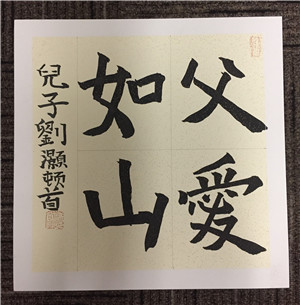 父愛
如山
兒子劉灝頓首